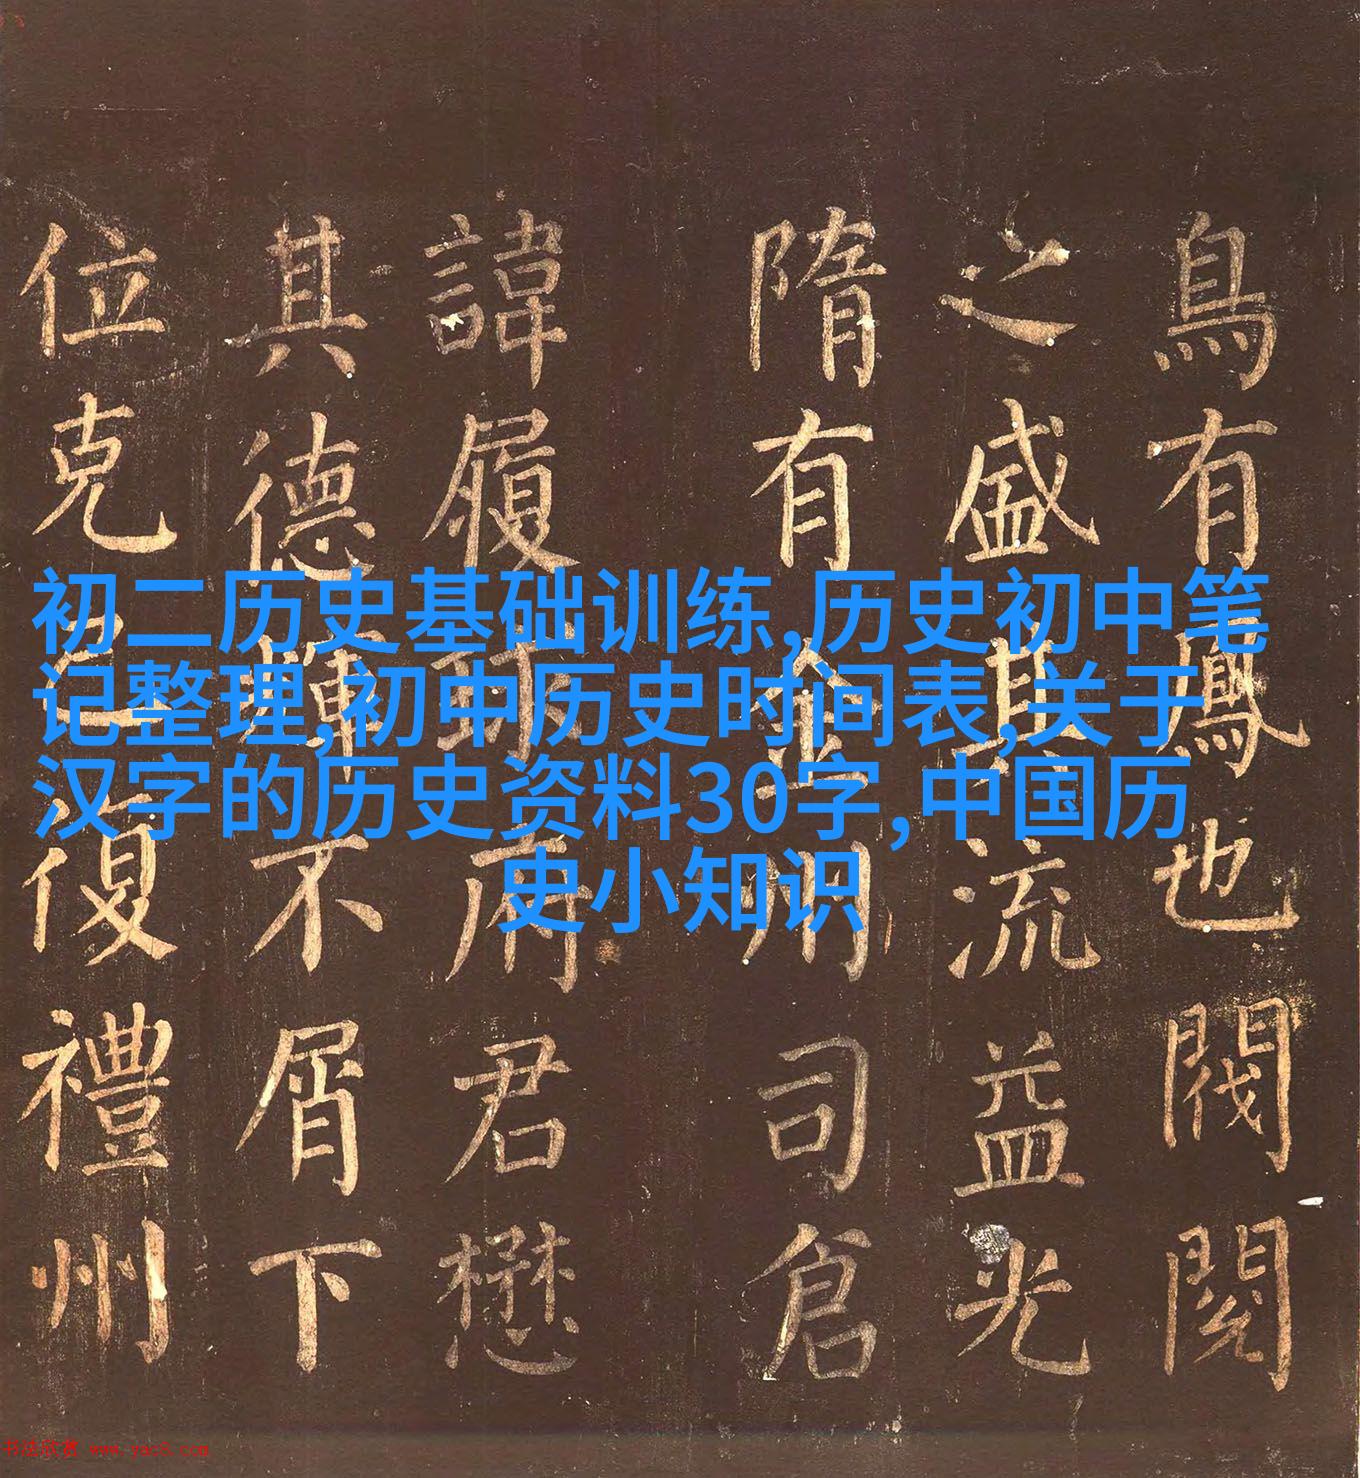 初二历史基础训练,历史初中笔
记整理,初中历史时间表,关于
汉字的历史资料30字,中国历
史小知识
鳥有鳳也閥閱
之盛其流益光
隋有金州司倉
諱履府君懋
其德不屑下
位克己復禮州
书法欣赏 www.yac8.com